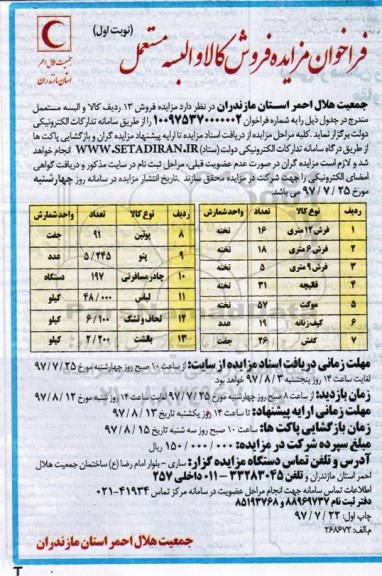 (نوبت اول)
فراخوان مزایده فروش کالا و البسه مستعمل
جمعیت هلال احمر
استان مازندران
جمعیت هلال احمر استان مازندران در نظر دارد مزایده فروش ۱۳ ردیف کالا و البسه مستعمل
مندرج در جدول ذیل را به شماره فراخوان ۱۰۰۹۷۵۳۷۰۰۰۰۰۰۲ را از طریق سامانه تدارکات الکترونیکی
دولت برگزار نماید. کلیه مراحل مزایده از دریافت اسناد مزایده تا ارایه پیشنهاد مزایده گران و بازگشایی پاکت ها
از طریق درگاه سامانه تدارکات الکترونیکی دولت (ستاد) WWW.SETADIRAN.IR انجام خواهد
شد و لازم است مزایده گران در صورت عدم عضویت قبلی، مراحل ثبت نام در سایت مذکور و دریافت گواهی
امضای الکترونیکی را جهت شرکت در مزایده محقق سازند. تاریخ انتشار مزایده در سامانه روز چهارشنبه
مورخ ۹۷/۷/۲۵ می باشد.
ردیف نوع کالا تعداد واحد شمارش
۱ فرش ۱۲ متری ۱۶ تخته
۲ فرش ۶ متری ۱۸ تخته
۳ فرش ۹ متری ۵ تخته
۴ قالیچه ۳۱ تخته
۵ موکت ۵۷ تخته
۶ کیف زنانه ۱۹ عدد
۷ کفش ۲۶ جفت
ردیف نوع کالا تعداد واحد شمارش
۸ پوتین ۹۱ جفت
۹ پتو ۵/۲۴۵ عدد
۱۰ چادر مسافرتی ۱۹۷ دستگاه
۱۱ لباس ۴۸/۰۰۰ کیلو
۱۲ لحاف و تشک ۶/۱۰۰ کیلو
۱۳ بالشت ۲/۲۰۰ کیلو
مهلت زمانی دریافت اسناد مزایده از سایت: از ساعت ۱۰ صبح روز چهارشنبه مورخ ۹۷/۷/۲۵
لغایت ساعت ۱۴ روز پنجشنبه ۹۷/۸/۳ خواهد بود.
زمان بازدید: از ساعت ۸ صبح روز چهارشنبه مورخ ۹۷/۷/۲۵ لغایت ساعت ۱۴ روز شنبه مورخ ۹۷/۸/۱۲
مهلت زمانی ارایه پیشنهاد: تا ساعت ۱۴ روز یکشنبه تاریخ ۹۷/۸/۱۳
زمان بازگشایی پاکت ها: ساعت ۱۰ صبح روز سه شنبه تاریخ ۹۷/۸/۱۵
مبلغ سپرده شرکت در مزایده: ۱۵۰/۰۰۰/۰۰۰ ریال
آدرس و تلفن تماس دستگاه مزایده گزار: ساری - بلوار امام رضا (ع) ساختمان جمعیت هلال
احمر استان مازندران و تلفن ۳۳۲۸۳۰۴۵-۰۱۱ داخلی ۲۵۷
اطلاعات تماس سامانه جهت انجام مراحل عضویت در سامانه مرکز تماس ۴۱۹۳۴-۰۲۱
دفتر ثبت نام ۸۸۹۶۹۷۳۷ و ۸۵۱۹۳۷۶۸
چاپ اول: ۹۷/۷/۲۲
م الف: ۲۶۸۶۷۲
جمعیت هلال احمر استان مازندران